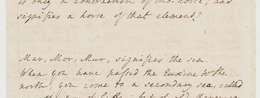 is only a contraction of and
signifies a horse of that element?
Mar, Mor, Mur, signifies the sea
When you have passed the Euxine to the
north, you come to a secondary sea, called